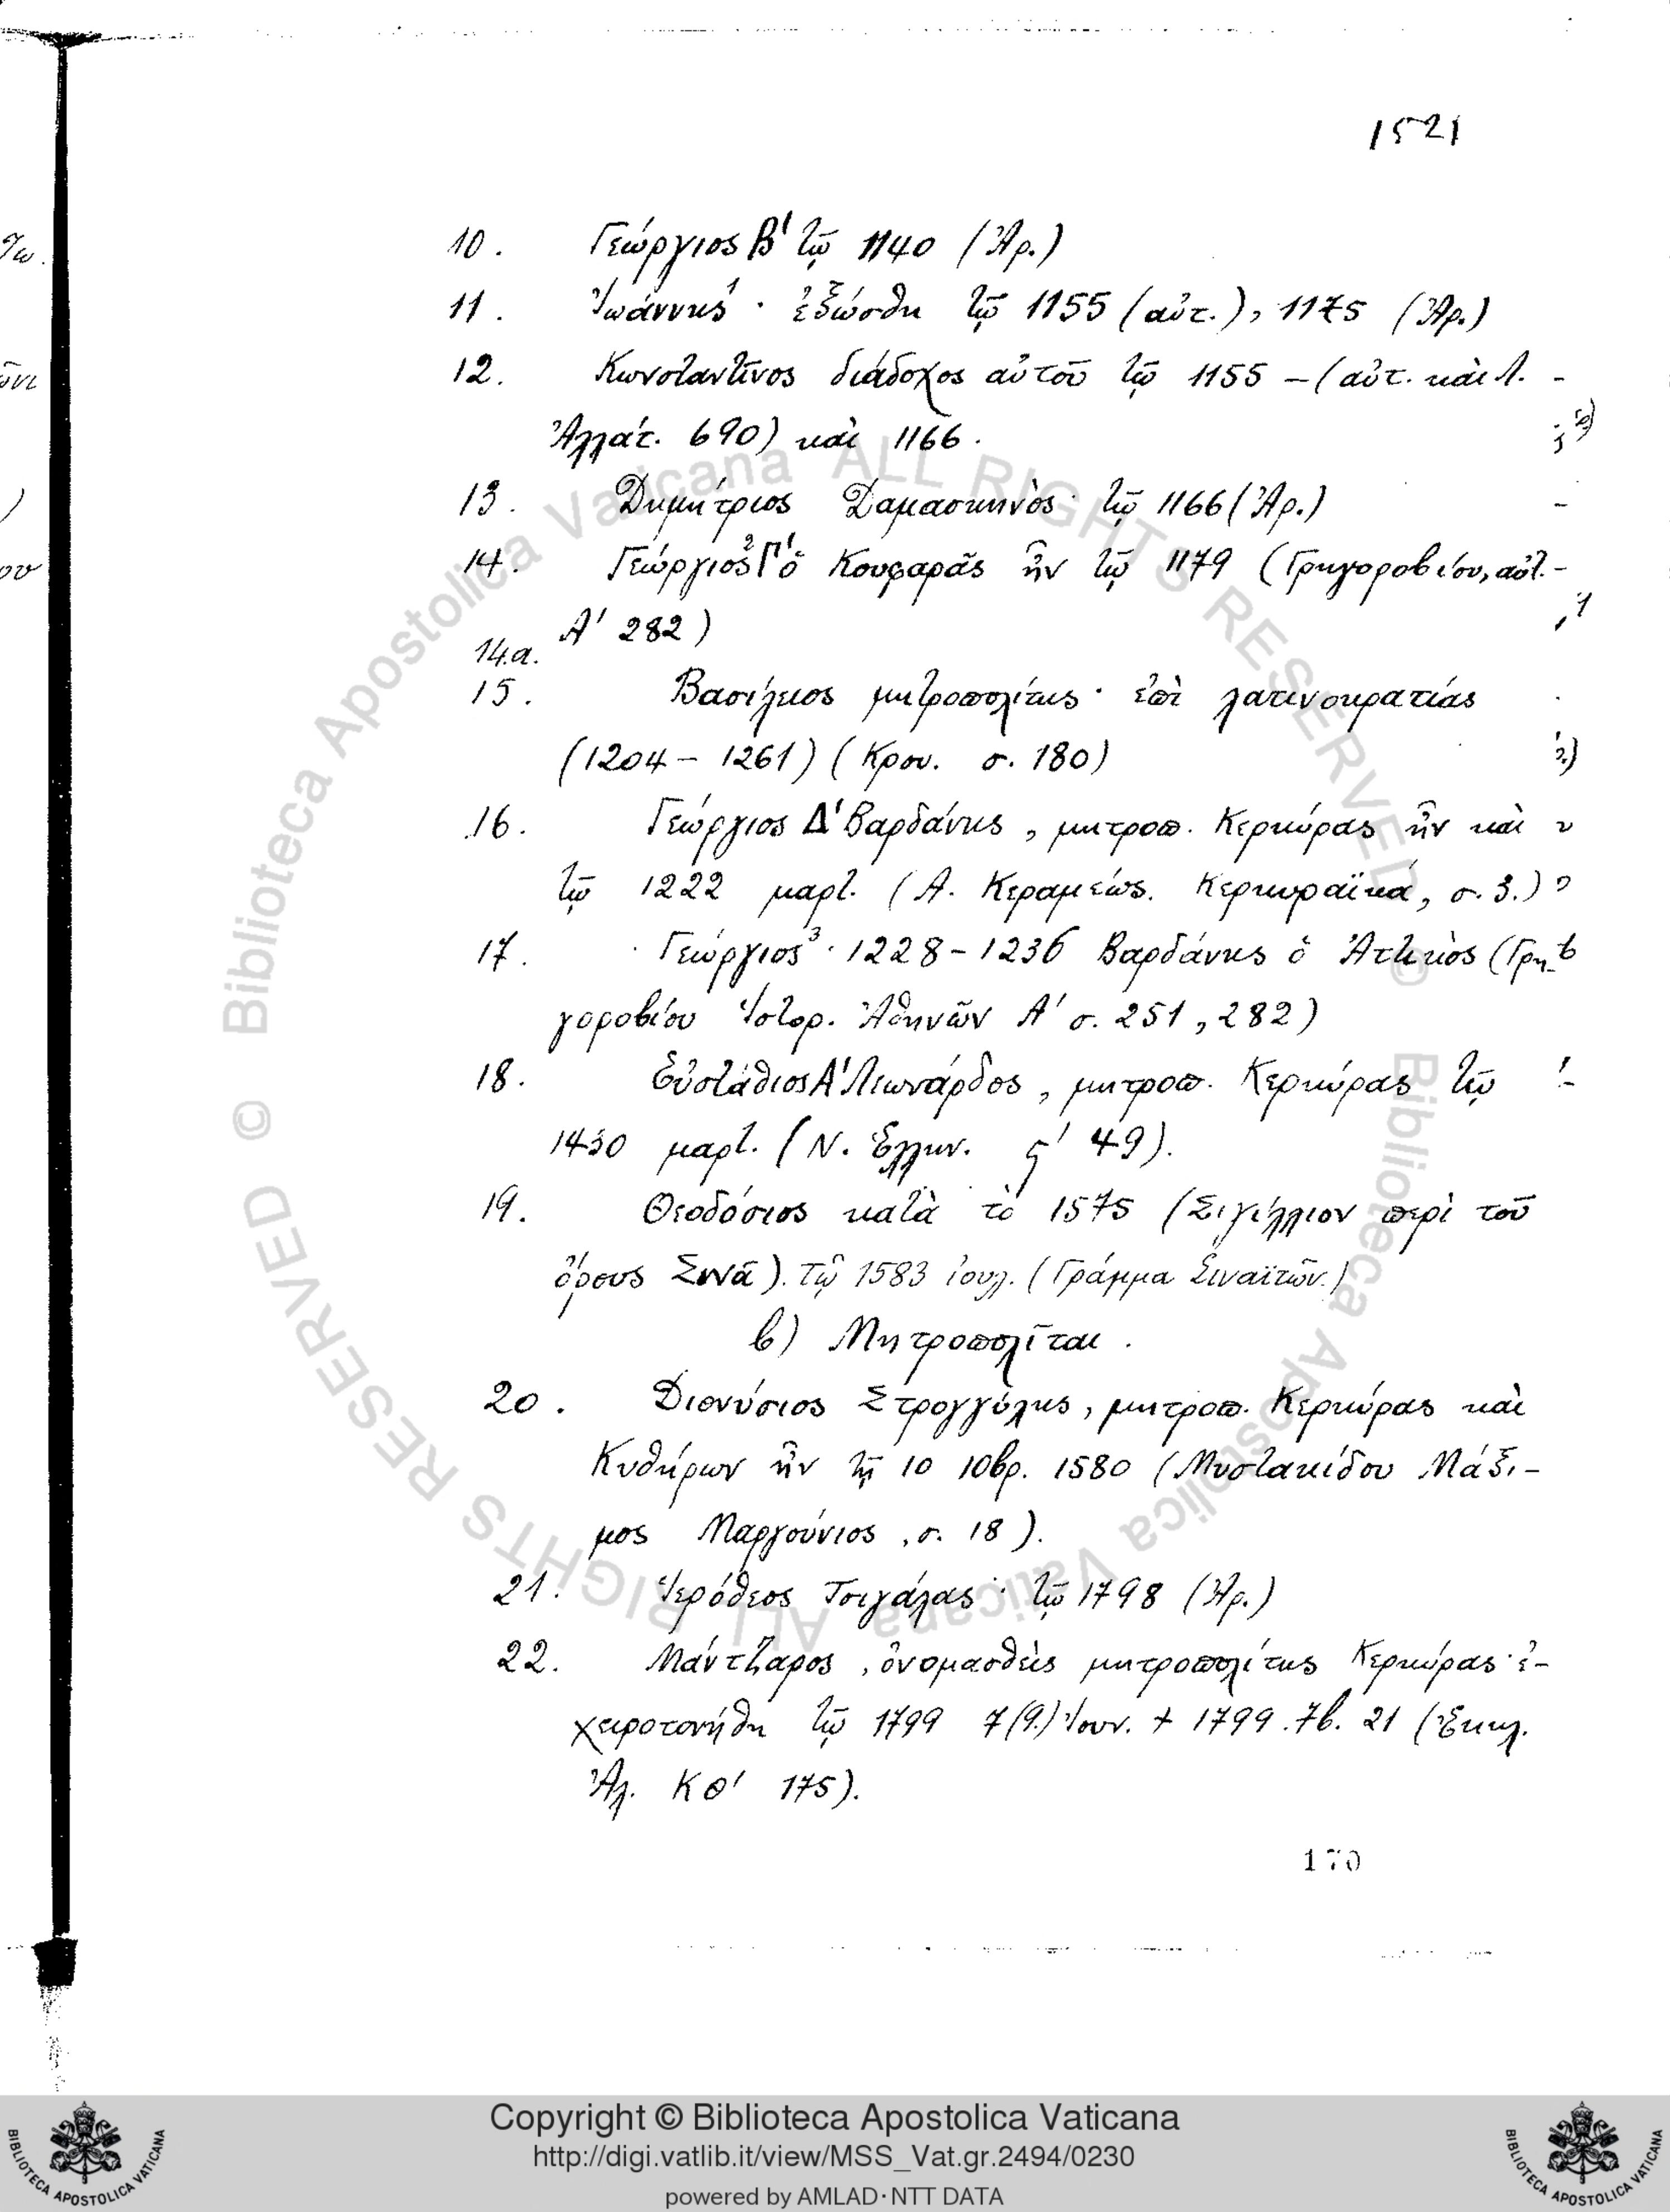 1521
10. Γεώργιος Β' τῷ 1140 (Ἀρ.)
11. Ἰωάννης¹ · ἐξώσθη τῷ 1155 (αὐτ.), 1175 (Ἀρ.)
12. Κωνσταντῖνος διάδοχος αὐτοῦ τῷ 1155 – (αὐτ. καὶ Λ.
Ἀλλάτ. 690) καὶ 1166.
13. Δημήτριος Δαμασκηνὸς· τῷ 1166 (Ἀρ.)
14. Γεώργιος² Γ' ὁ Κουφαρᾶς ἦν τῷ 1179 (Γρηγοροβίου, αὐτ.
Α' 282)
14.α.
15. Βασίλειος μητροπολίτης· ἐπὶ λατινοκρατίας
(1204 – 1261) (Κρου. σ. 180)
16. Γεώργιος Δ' Βαρδάνης, μητροπ. Κερκύρας ἦν καὶ
τῷ 1222 μαρτ. (Α. Κεραμέως. Κερκυραϊκά, σ. 3.)
17. Γεώργιος³ · 1228–1236 Βαρδάνης ὁ Ἀττικὸς (Γρη-
γοροβίου Ἱστορ. Ἀθηνῶν Α' σ. 251, 282)
18. Εὐστάθιος Α' Λεωνάρδος, μητροπ. Κερκύρας τῷ
1430 μαρτ. (Ν. Ἑλλην. ϛ' 49).
19. Θεοδόσιος κατὰ τὸ 1575 (Σιγίλλιον περὶ τοῦ
ὄρους Σινᾶ). Τῷ 1583 ἰουλ. (Γράμμα Σιναϊτῶν.)
β) Μητροπολῖται.
20. Διονύσιος Στρογγύλης, μητροπ. Κερκύρας καὶ
Κυθήρων ἦν τῇ 10 10βρ. 1580 (Μυστακίδου Μάξι-
μος Μαργούνιος, σ. 18).
21. Ἱερόθεος Τσιγάλας· τῷ 1798 (Ἀρ.)
22. Μάντζαρος, ὀνομασθεὶς μητροπολίτης Κερκύρας· ἐ-
χειροτονήθη τῷ 1799 7(9.) Ἰουν. + 1799. 7β. 21 (Ἐκκλ.
Ἀλ. ΚΘ' 175).
170
© Biblioteca Apostolica Vaticana ALL RIGHTS RESERVED
© Biblioteca Apostolica Vaticana ALL RIGHTS RESERVED
Copyright © Biblioteca Apostolica Vaticana
http://digi.vatlib.it/view/MSS_Vat.gr.2494/0230
powered by AMLAD·NTT DATA
BIBLIOTECA APOSTOLICA VATICANA
BIBLIOTECA APOSTOLICA VATICANA